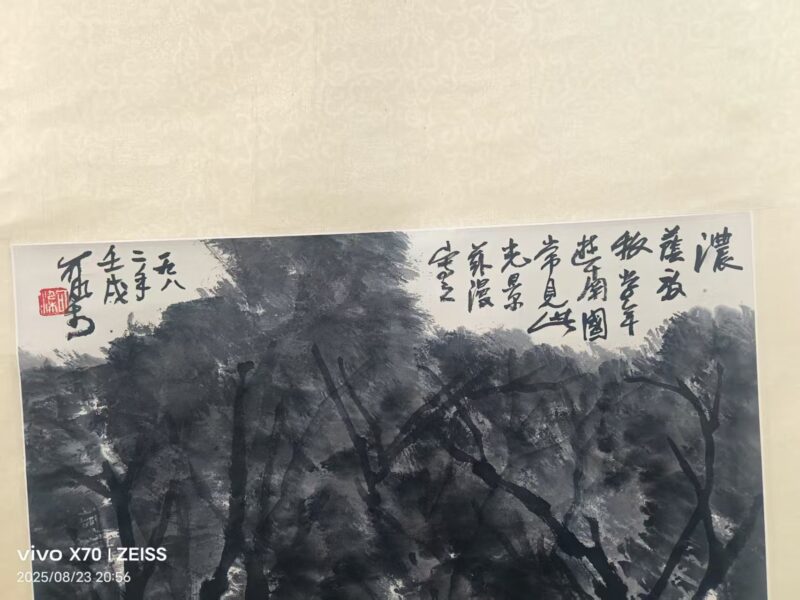 濃
蔭放
牧 当年
遊南國
常見此
光景
漫
寫之
一九八
二年
壬戌
可染
可染
vivo X70 | ZEISS
2025/08/23 20:56